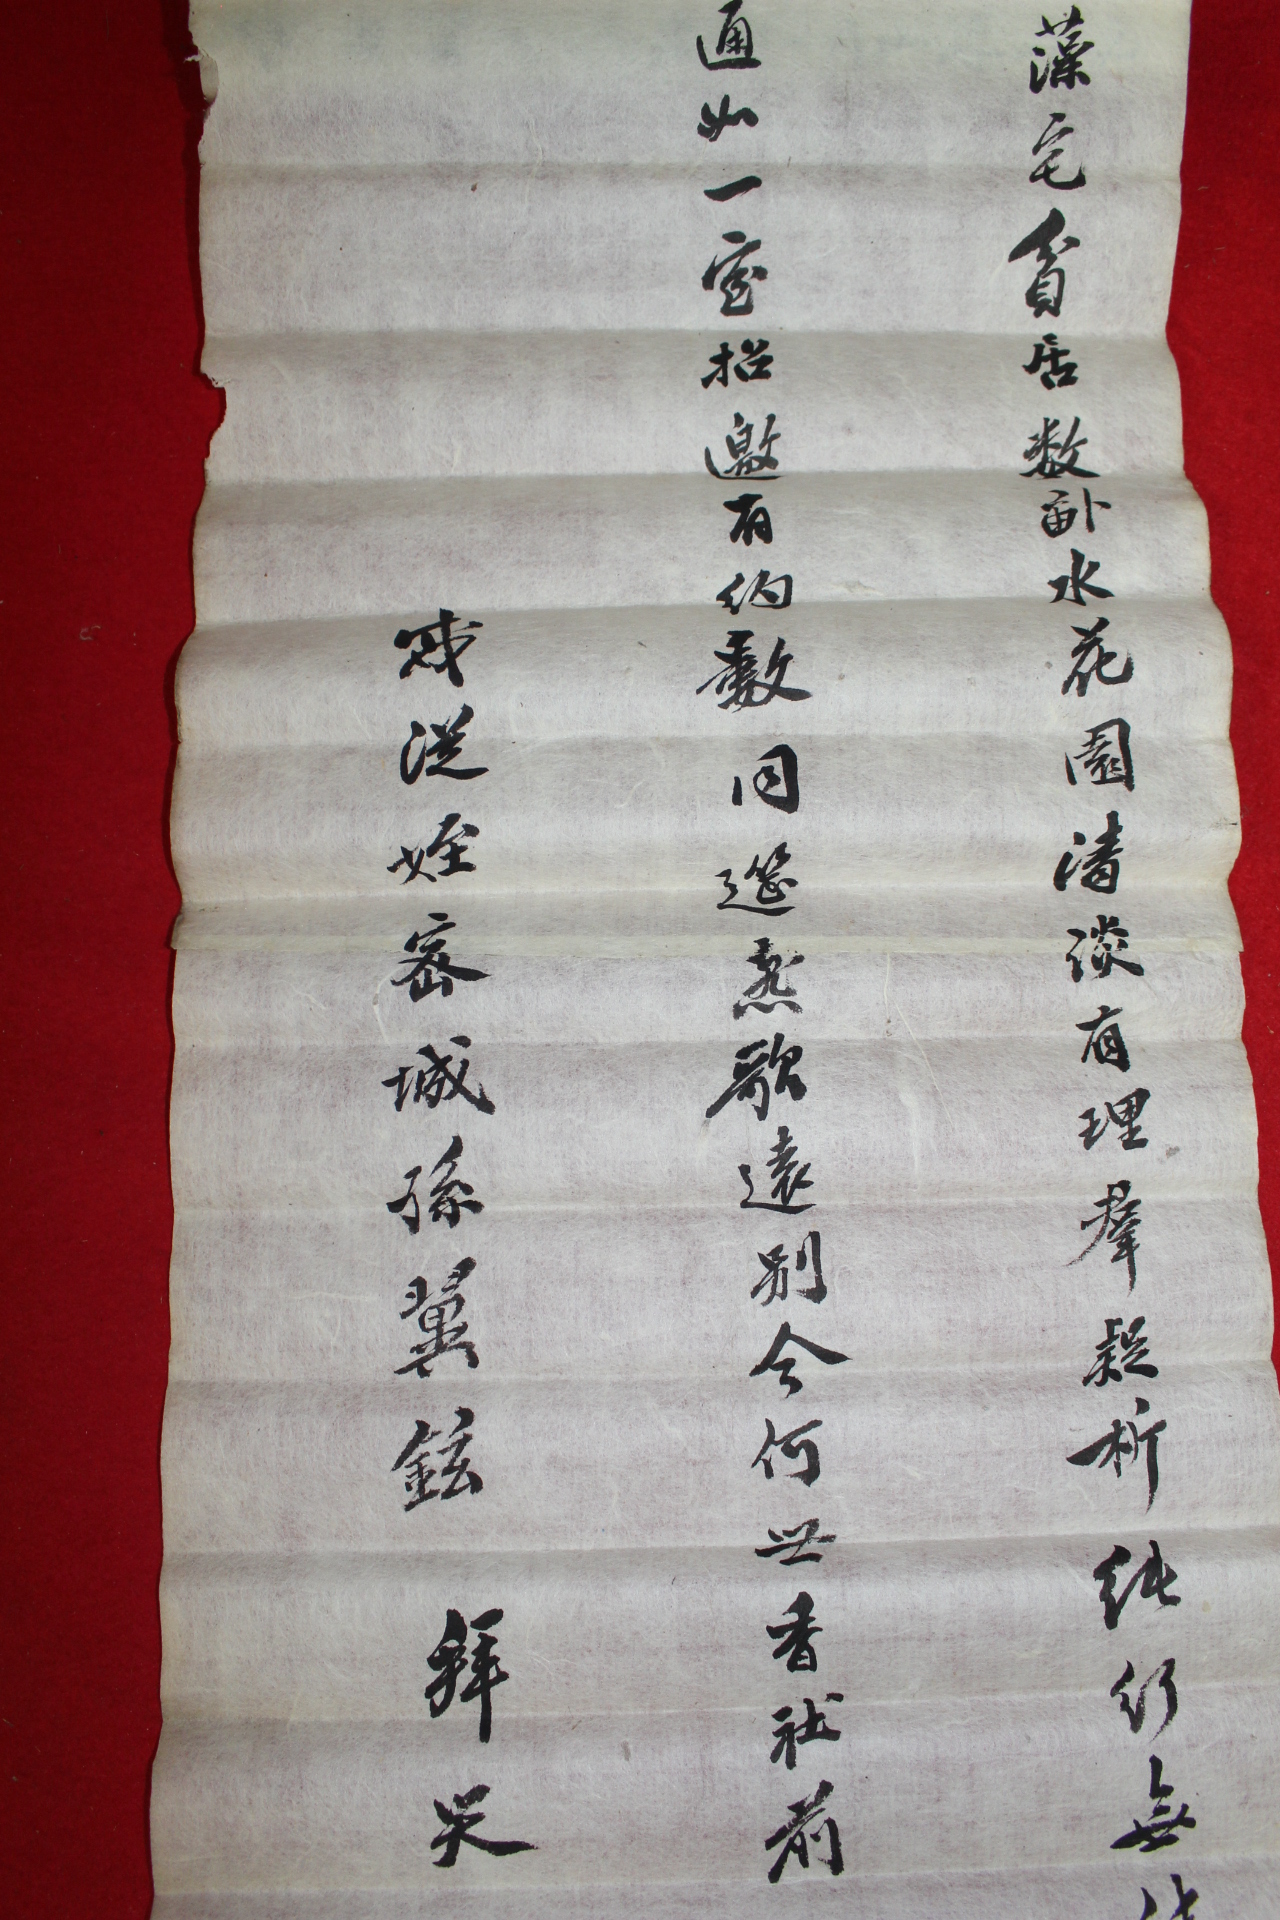 藻宅貧居數畝水花園清談有理羣疑析純行無
通如一室招邀有約數同筵烝歌遠別今何世香社前
戚從姪密城孫冀鉉 拜哭